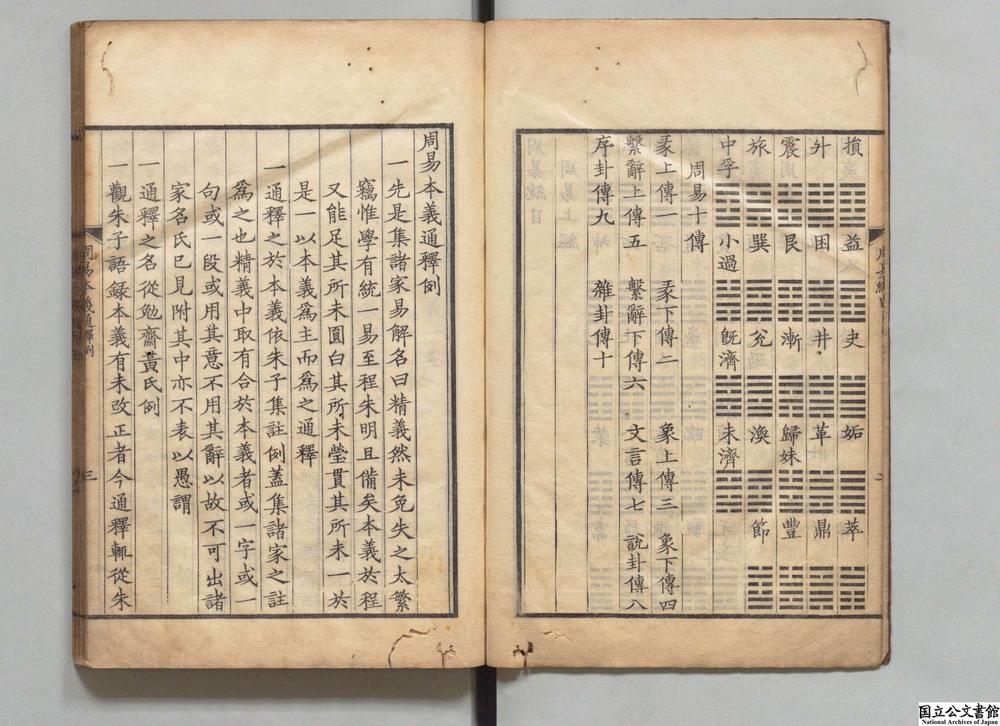 損 益 夬 姤 萃
升 困 井 革 鼎
震 艮 漸 歸妹 豐
旅 巽 兊 渙 節
中孚 小過 既濟 未濟
周易十傳
彖上傳一 彖下傳二 象上傳三 象下傳四
繫辭上傳五 繫辭下傳六 文言傳七 說卦傳八
序卦傳九 雜卦傳十
周易本義通釋例
一先是集諸家易解名曰精義然未免失之太繁
竊惟學有統一易至程朱明且備矣本義於程
又能足其所未圓白其所未瑩貫其所未一於
是一以本義爲主而爲之通釋
一通釋之於本義依朱子集註例蓋集諸家之註
爲之也精義中取有合於本義者或一字或一
句或一段或用其意不用其辭以故不可出諸
家名氏已見附其中亦不表以愚謂
一通釋之名從勉齋黃氏例
一觀朱子語録本義有未改正者今通釋輒從朱
周易本義通釋例
三
国立公文書館
National Archives of Japan